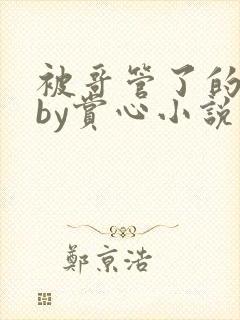 被哥管了的
by賞心小說
鄭京浩